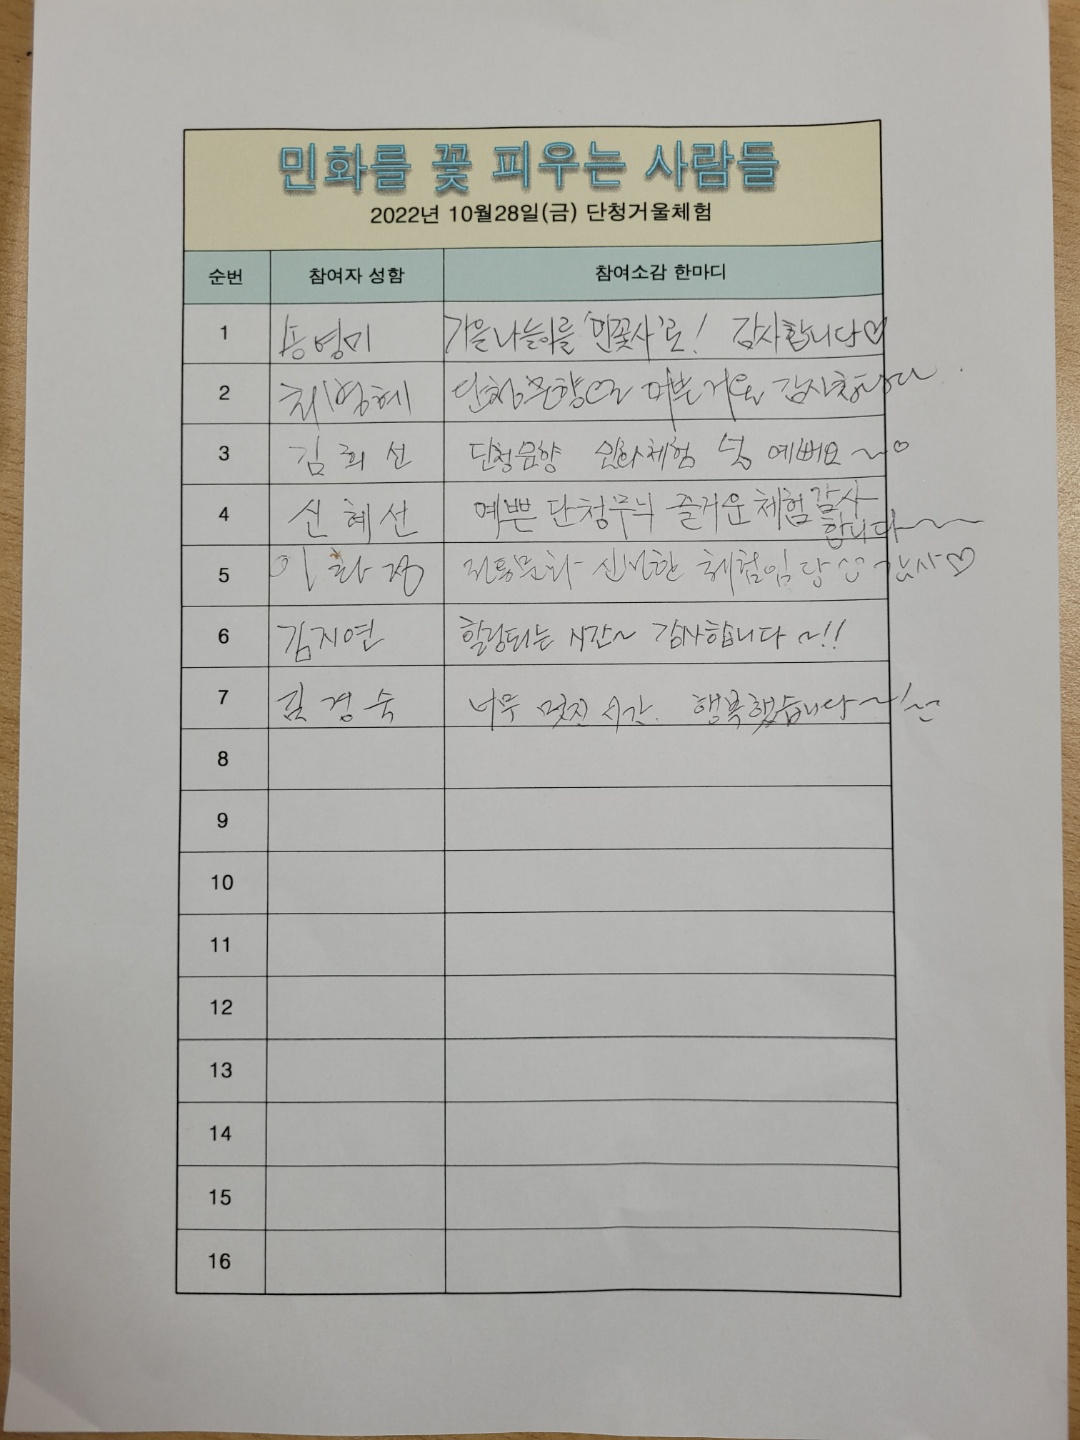 민화를 꽃 피우는 사람들
2022년 10월28일(금) 단청거울체험
순번 참여자 성함 참여소감 한마디
1 송영미 가을나들이를 '민꽃사'로! 감사합니다♡
2 최명혜 단청문향으로 예쁜 거울 감사합니다
3 김희선 단청문향 민화체험 넘 예뻐요~♡
4 신혜선 예쁜 단청무늬 즐거운 체험 감사
합니다~~
5 이화정 전통문화 신비한 체험임당 감사♡
6 김지연 힐링되는 시간~ 감사합니다~!!
7 김경숙 너무 멋진 시간. 행복했습니다~!~
8
9
10
11
12
13
14
15
16